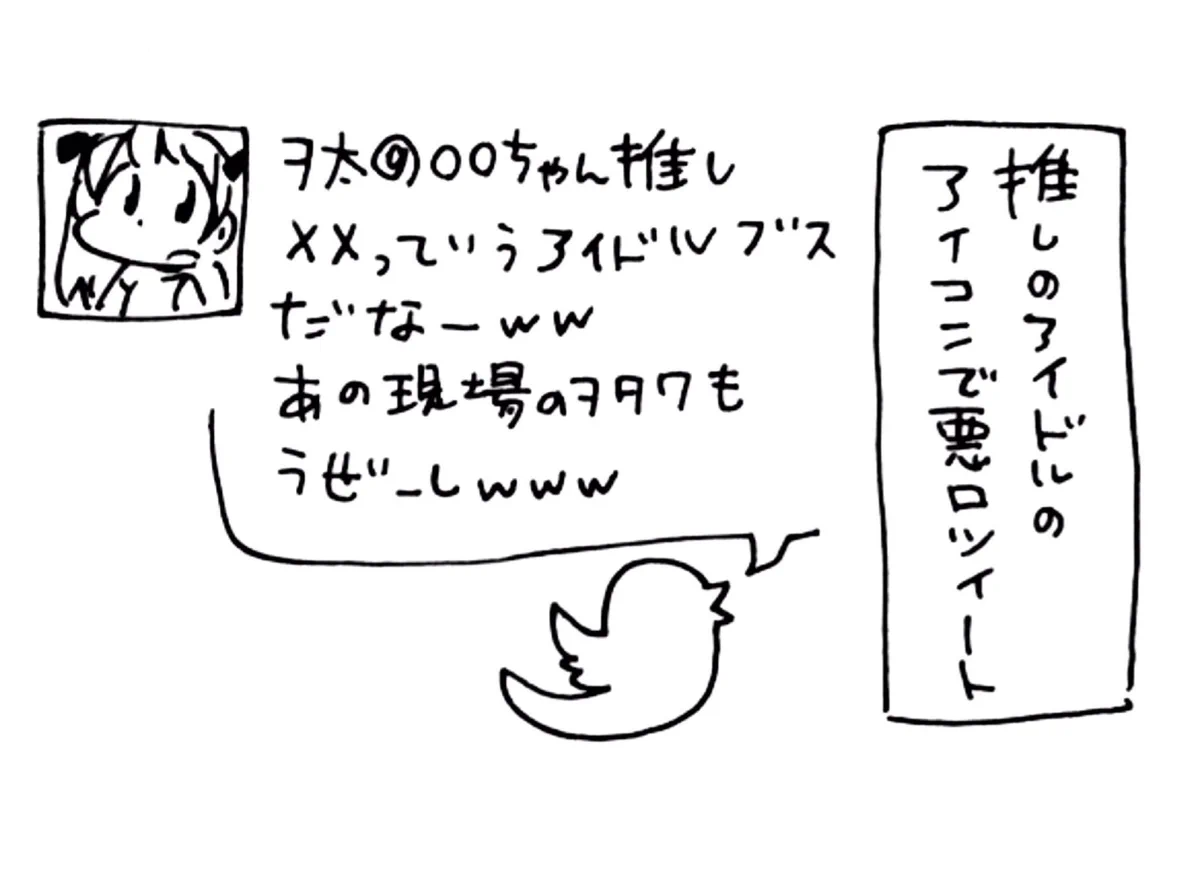 ヲ太@○○ちゃん推し
××っていうアイドルブス
だなーww
あの現場のヲタクも
うぜーしwww
推しのアイドルの
アイコンで悪口ツイート